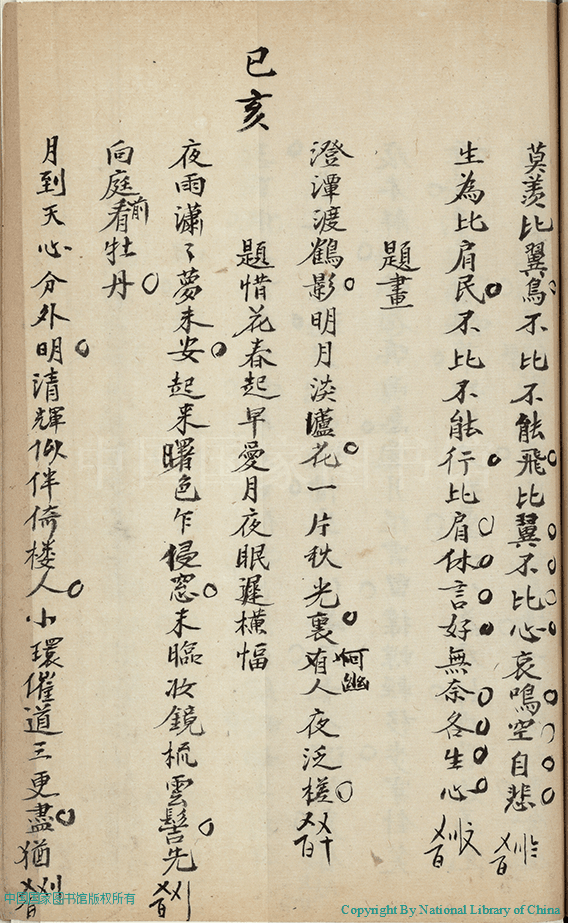 莫羨比翼鳥不比不能飛比翼不比心哀鳴空自悲
生為比肩民不比不能行比肩休言好無奈各生心
題畫
澄潭渡鶴影明月淡蘆花一片秋光裏何人幽夜泛槎
己亥
題惜花春起早愛月夜眠遲橫幅
夜雨瀟〻夢未安起来曙色乍侵窓未臨妆鏡梳雲髻先
向庭前看牡丹
月到天心分外明清輝似伴倚楼人小環催道三更盡猶
中国国家图书馆版权所有
Copyright By National Library of China